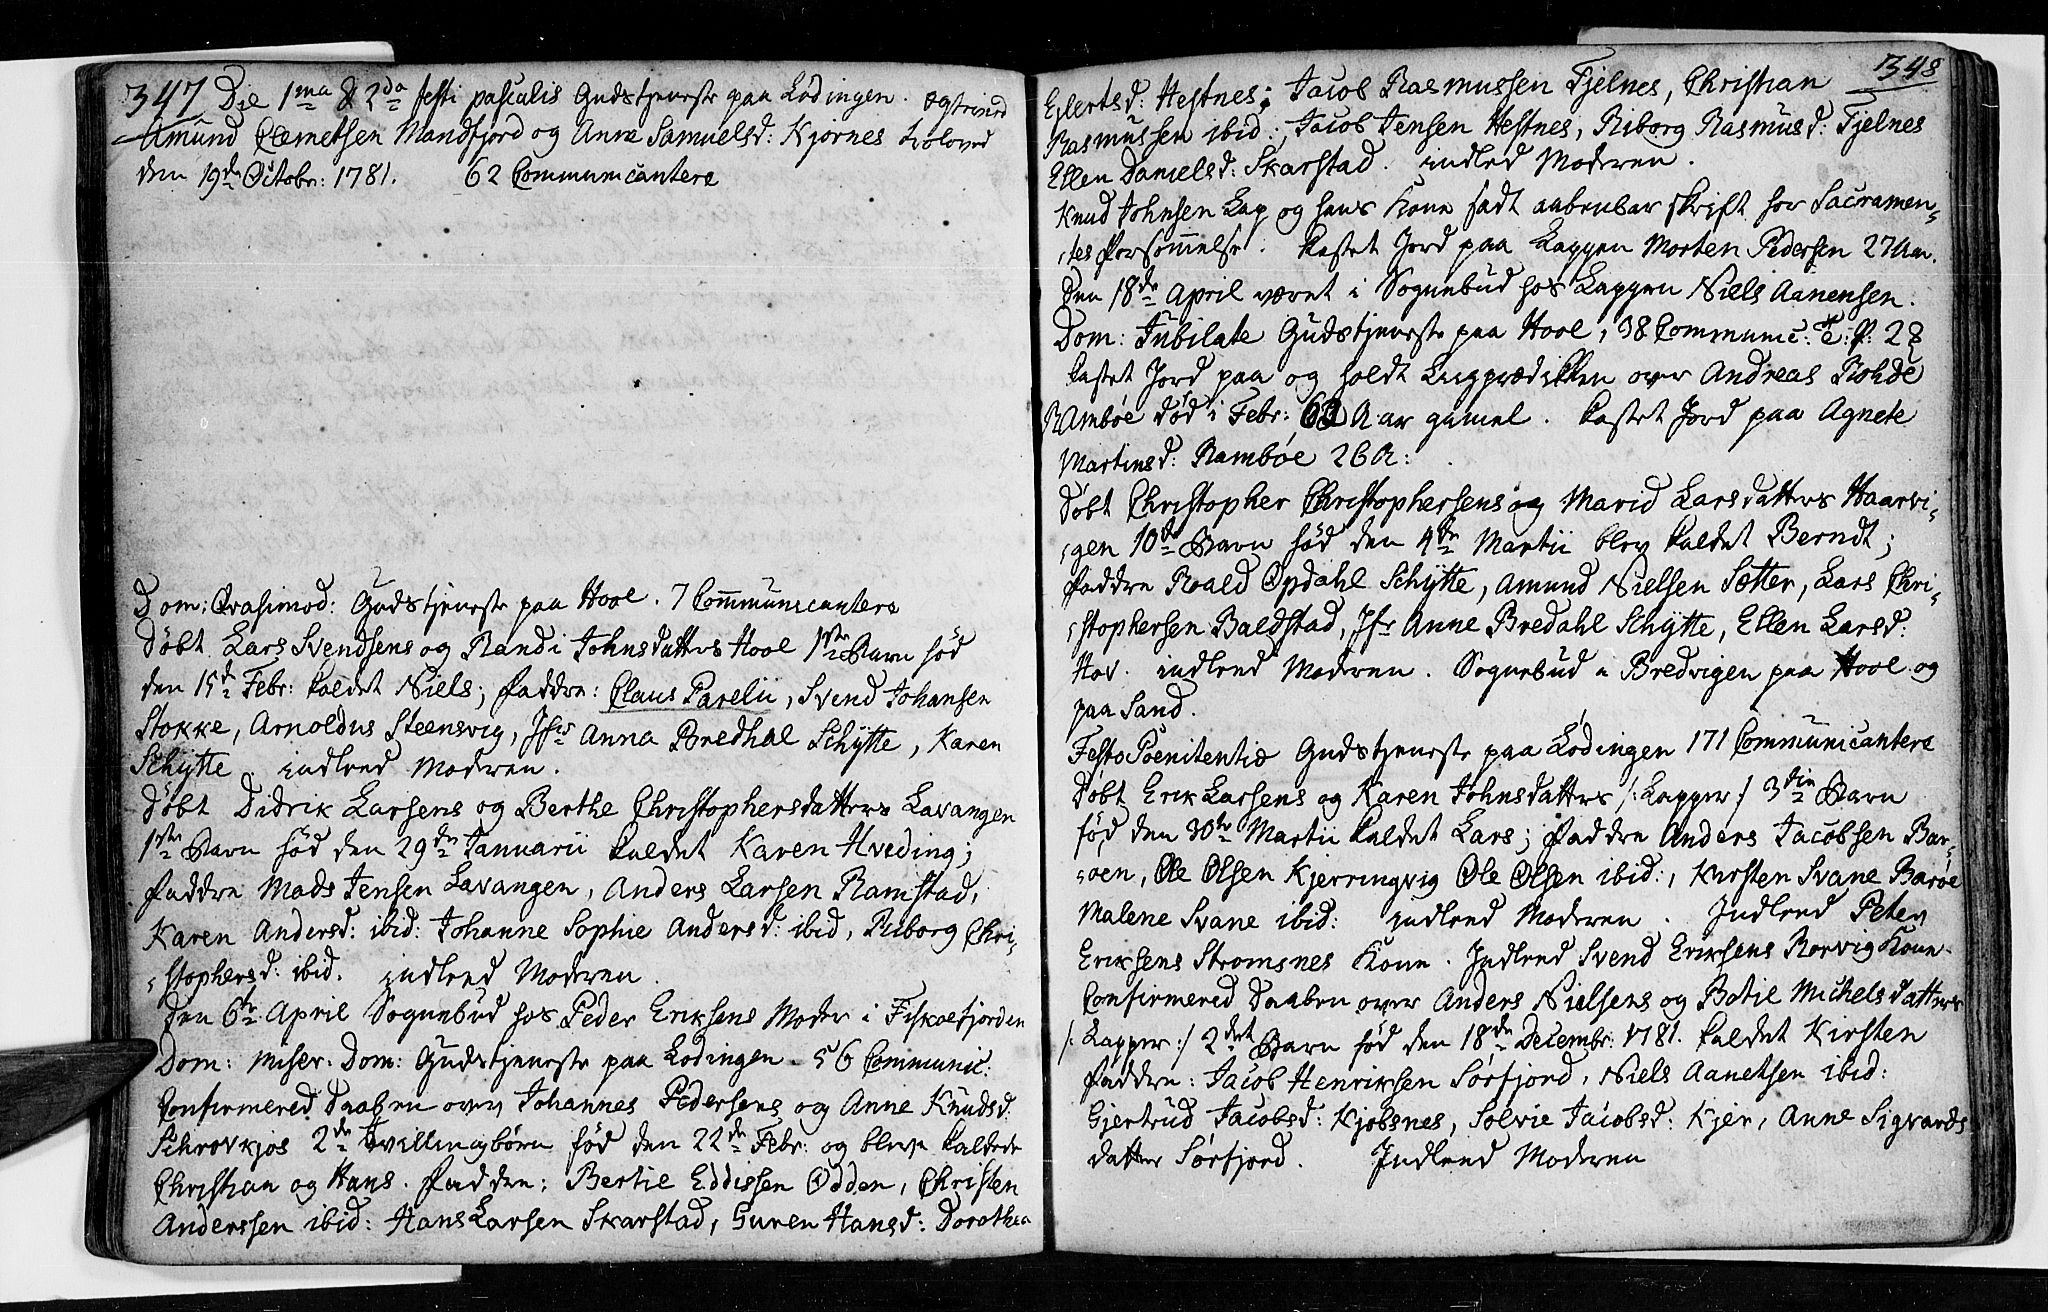 347 Die 1ma & 2da festi paschalis Gudstjeneste paa Lødingen. Egtevied
Amund Clemetsen Mandfjord og Anne Samuelsd: Kjørnes troloved
den 19de Octobr: 1781. 62 Communicantere
Dom: Qvasimod: Gudstjeneste paa Hool. 7 Communicantere
Døbt Lars Svendsens og Randi Johnsdatters Hool 1ste Barn fød
den 15de Febr: kaldet Niels; faddre: Claus Parelii, Svend Johansen
Stokke, Arnoldus Steensvig, Jfr Anna Bredhal Schÿtte, Karen
Schÿtte. indleed Moderen.
Døbt Didrik Larsens og Berthe Christophersdatters Lavangen
1ste Barn fød den 29de Januarii kaldet Karen Hveding;
faddre Mads Jensen Lavangen, Anders Larsen Ramstad,
Karen Andersd: ibid: Johanne Sophie Andersd: ibid, Riborg Chri-
stophersd: ibid. indleed Moderen.
Den 6te April Sognebud hos Peder Eriksens Moder i Fiskefjorden
Dom: Miser. Dom: Gudstjeneste paa Lodingen. 56 Communic:
Confirmered Daaben over Johannes Pedersens og Anne Knudsd.
Schrovkjos 2de Tvillingbørn fød den 22de Febr: og bleve kaldede
Christian og Hans. Faddre: Bertil Eddissen Odden, Christen
Anderssen ibid: Hans Larsen Skarstad, Guren Hansd: Dorothea
348
Ejlertsd: Hestnes; Jacob Rasmussen Fjelnes, Christian
Rasmussen ibid: Jacob Jensen Hestnes, Riborg Rasmusd: Fjelnes
Ellen Danielsd: Skarstad. indleed Moderen.
Knud Johnsen Lap og hans Kone stadt aabenbar skrift for Sacramen-
tes forsømmelse. kastet Jord paa Lappen Morten Pedersen 27 Aar.
Den 18de April været i Sognebud hos Lappen Niels Aanensen.
Dom: Jubilate Gudstjeneste paa Hool, 38 Communic: 28
kastet Jord paa og holdt Liigprædikken over Andreas Rohde
Rambøe død i Febr: Aar gamel. kastet Jord paa Agnete
Martinsd: Rambøe 26 A:
Døbt Christopher Christophersens og Marid Larsdatters Haarvi-
gen 10de Barn fød den 4de Martii blev kaldet Berndt;
faddre Roald Opdahl Schÿtte, Amund Nielsen Sætter, Lars Chri-
stophersen Baldstad, Jfr Anne Bredahl Schÿtte, Ellen Larsd:
Hov. indleed Moderen. Sognebud i Bredvigen paa Hool og
paa Sand.
Festo Poenitentiæ Gudstjeneste paa Lódingen 171 Communicantere
Døbt Erik Larsens og Karen Johnsdatters /: Lapper :/ 3die Barn
fød den 30te Martii kaldet Lars; faddre Anders Jacobsen Bar-
øen, Ole Olsen Kjerringvig Ole Olsen ibid:, Kirsten Svane Barøe
Malene Svane ibid: indleed Moderen. Indleed Peter
Eriksens Stromsnes Kone. Indleed Svend Eriksens Rorvig Kone.
Confirmered Daaben over Anders Nielsens og Botil Michelsdatters
/: Lapper :/ 2det Barn fød den 18de Decembr: 1781. kaldet Kirsten
faddre: Jacob Henriksen Sørfjord, Niels Aanetsen ibid:
Gjertrud Jacobsd: Kjøbsnes, Solvie Jacobsd: Kjer, Anne Sigvards
datter Sørfjord. Indleed Moderen